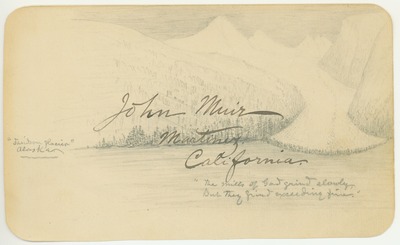 John Muir
Martinez
California
Alaska
"The mills of God grind slowly,
But they grind exceeding fine."